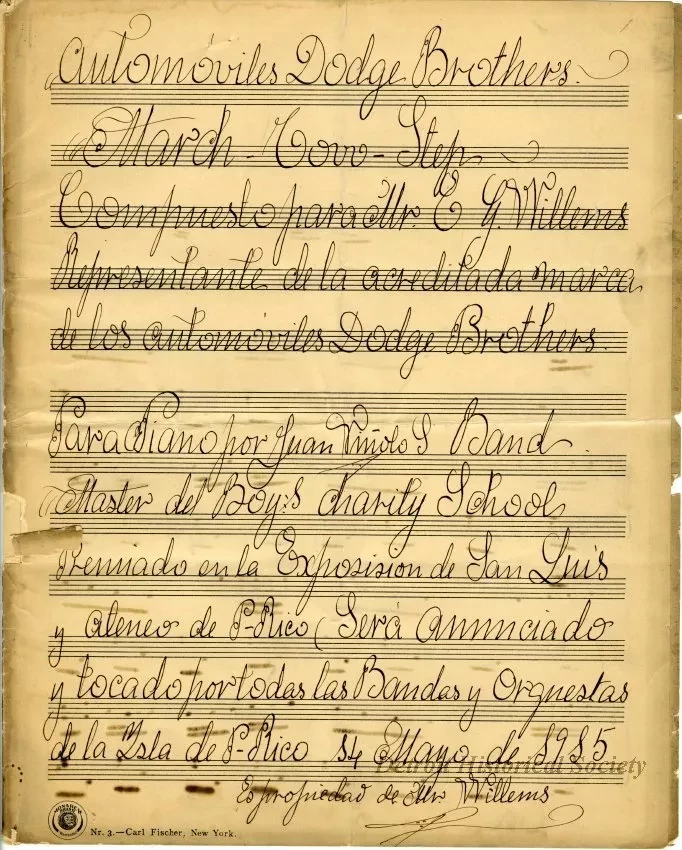 Automóviles Dodge Brothers.
March - Tow - Step
Compuesto para Mr. E G. Willems
Representante de la acreditada marca
de los automóviles Dodge Brothers.
Para Piano por Juan Viñolo S Band.
Master del Boy's Charity School
Premiado en la Exposision de San Luis
y ateneo de P-Rico (Será Anunciado
y tocado por todas las Bandas y Orquestas
de la Isla de P-Rico 14 Mayo de 1915
Detroit Historical Society
Es propiedad de Mr Willems
Nr. 3.—Carl Fischer, New York.